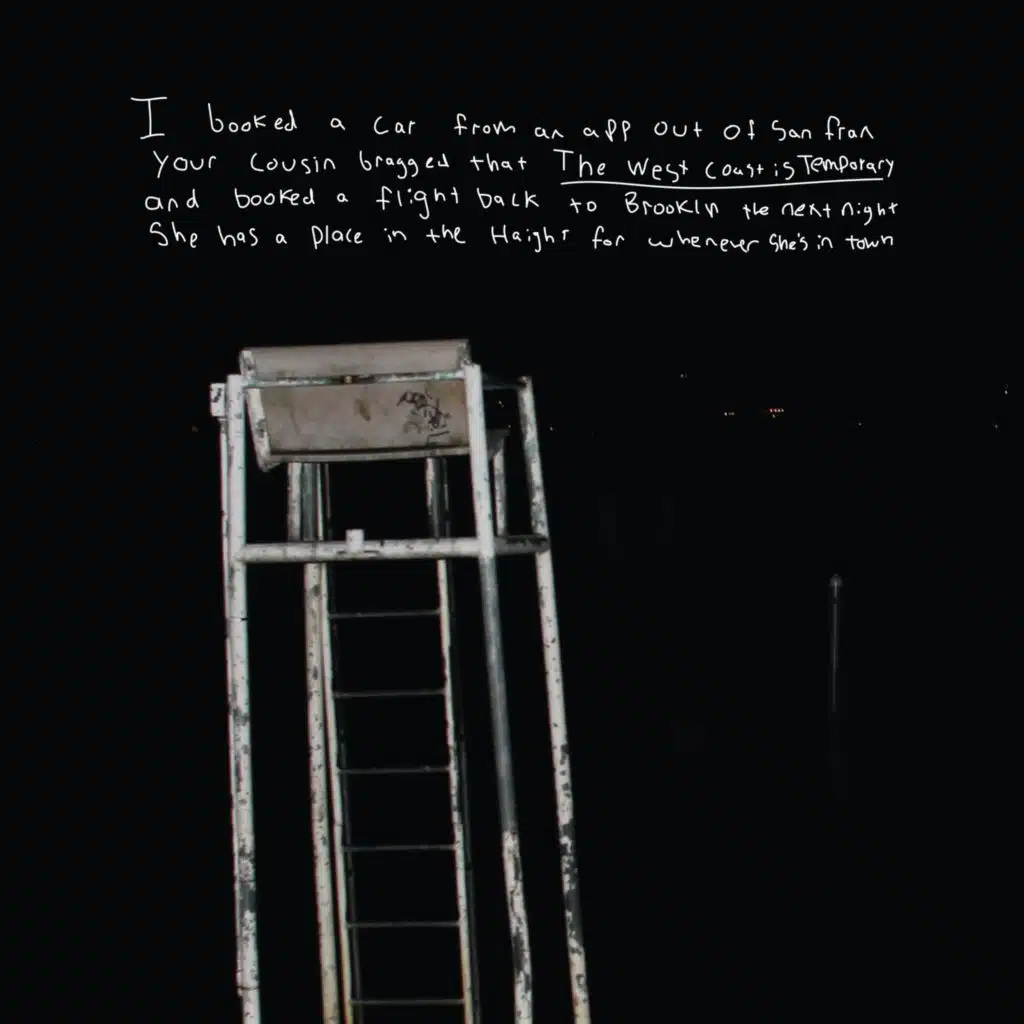 I booked a car from an app out of San fran
Your cousin bragged that The West Coast is Temporary
and booked a flight back to Brooklyn the next night
She has a place in the Haight for whenever she's in town